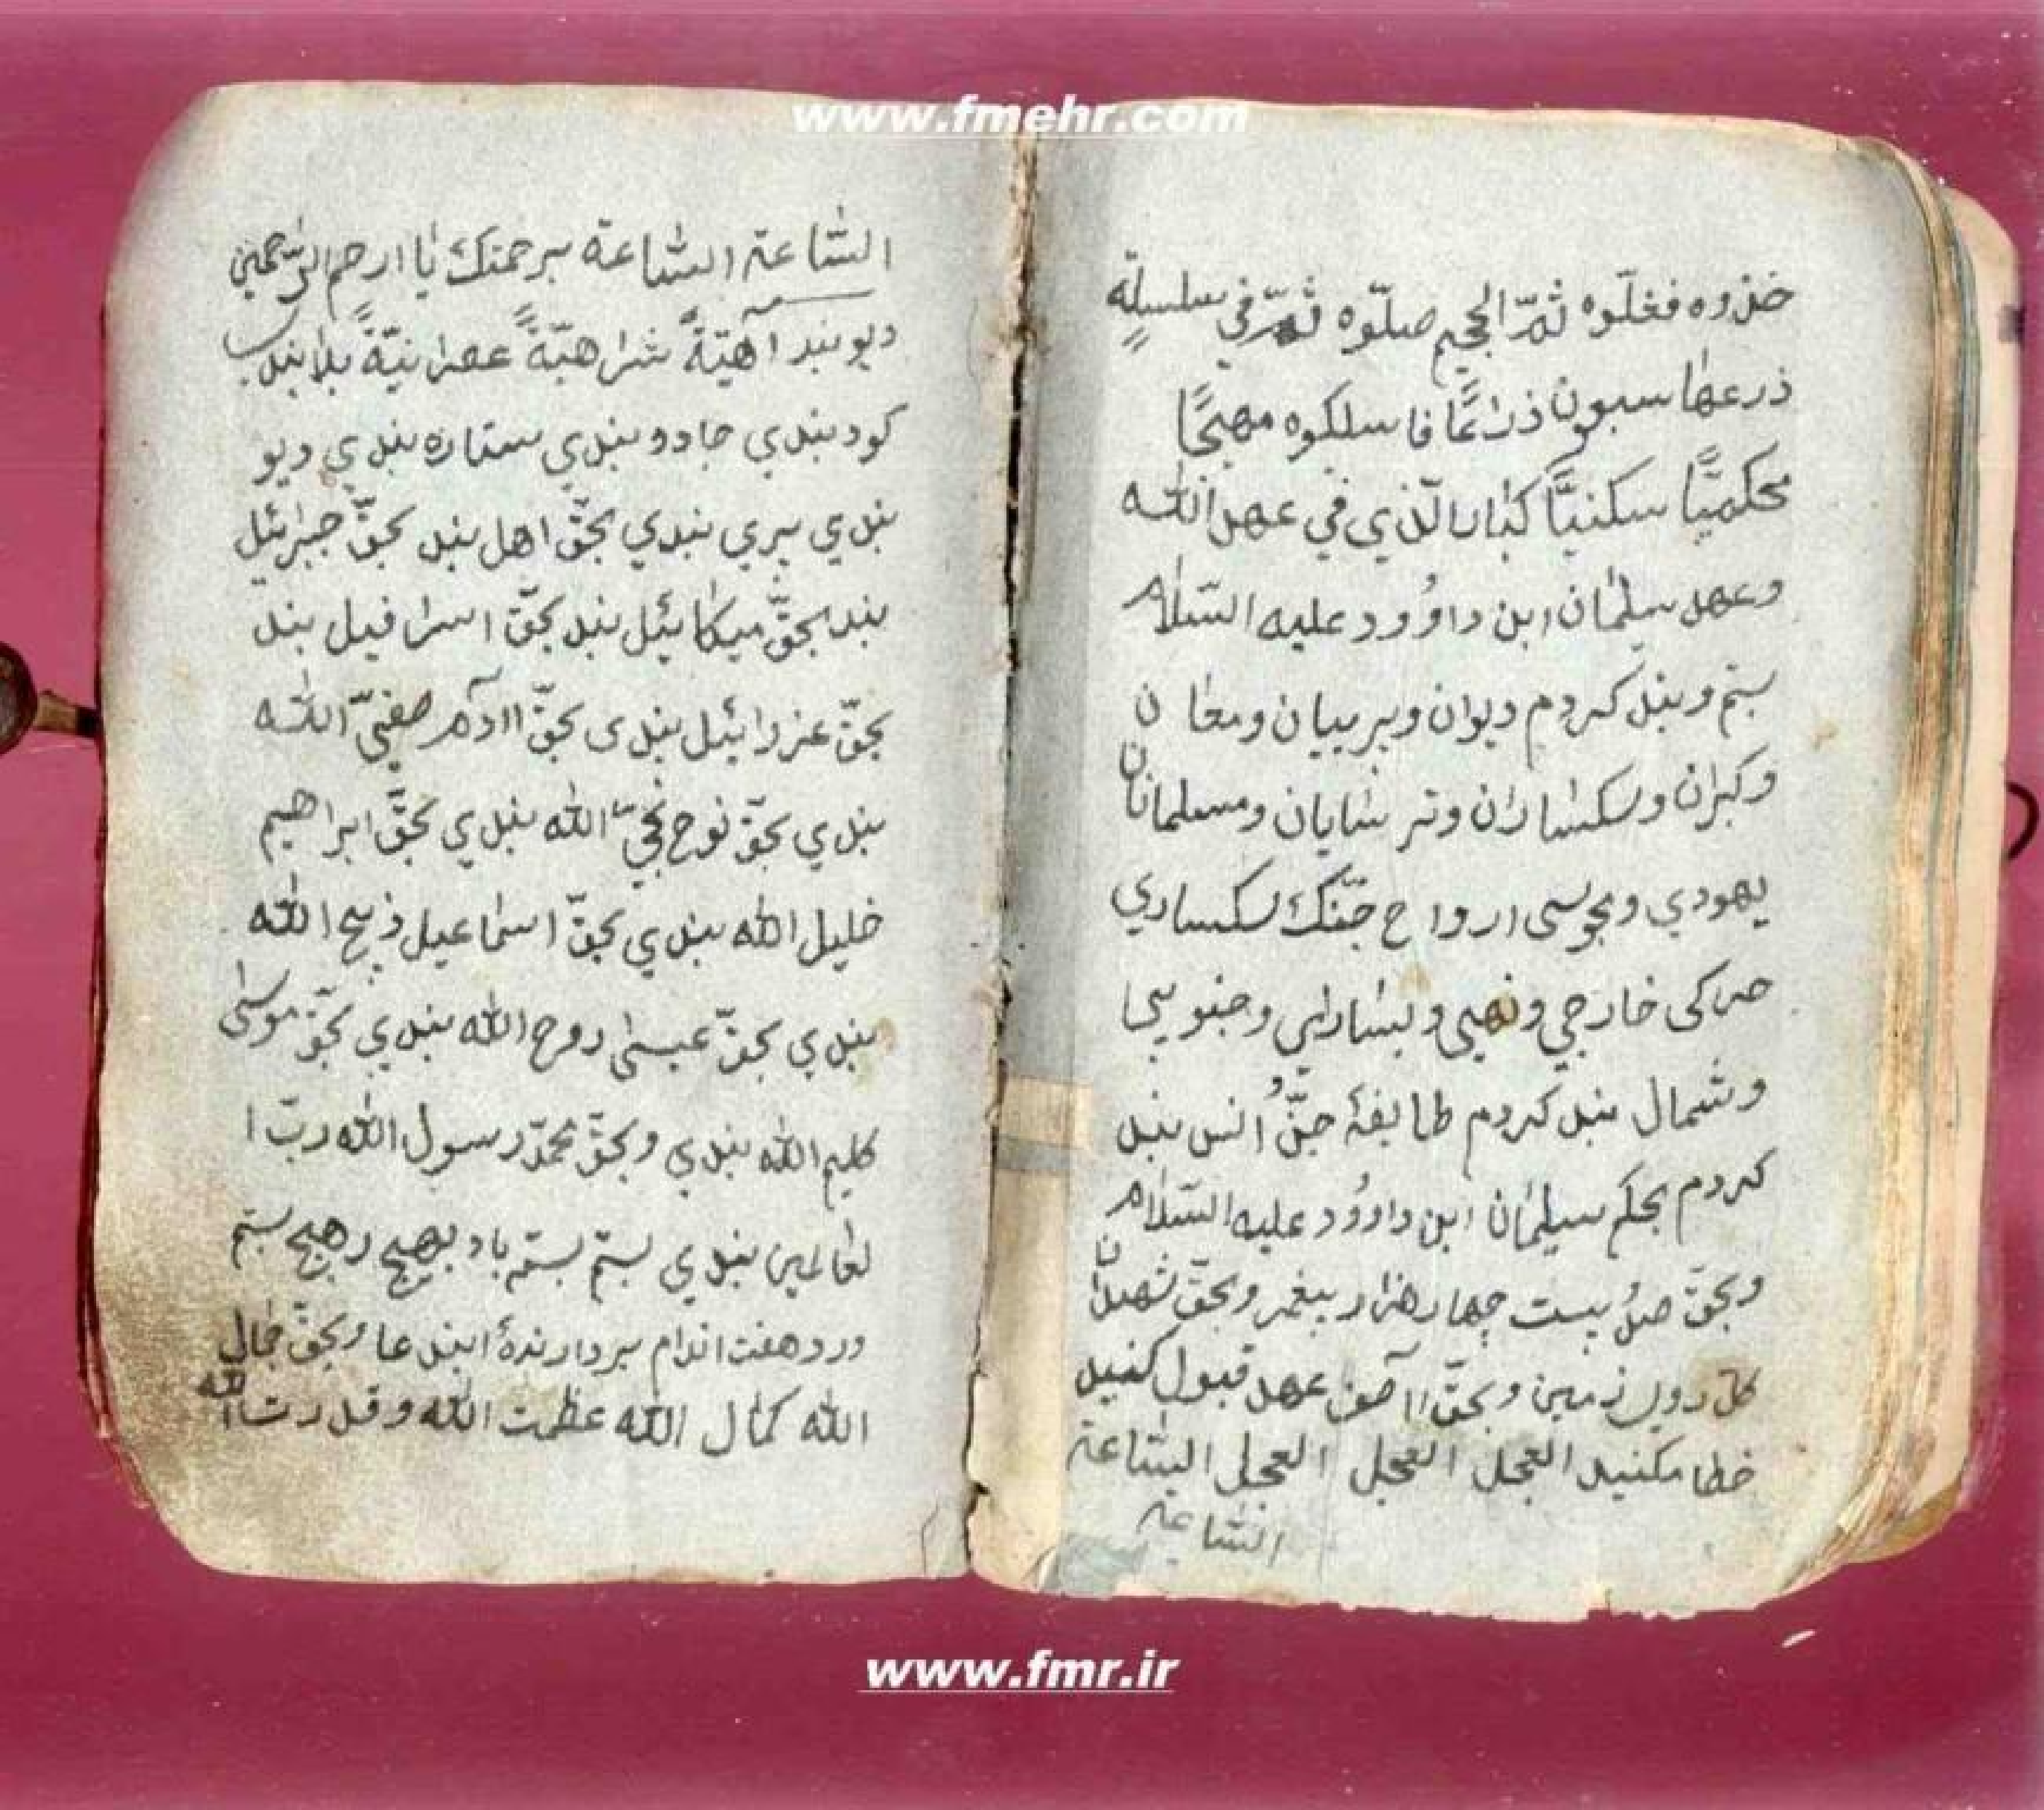 www.fmehr.com
خذوه فغلّوه ثمّ الجحيم صلّوه ثمّ في سلسلةٍ
ذرعها سبعون ذراعًا فاسلكوه
الّذي في عهد الله
وعهد سليمان ابن داوُود عليه السّلام
بستم وبند كردم ديوان وپرييان ومغان
وكبران وسكساران وترسايان ومسلمانان
يهودي ومجوسى ارواح سكساري
خارجي و
وشمال بند كردم طايفهٔ جنّ وُ انس بند
كردم بحكم سليمان ابن داوُود عليه السّلام
وبحقّ صدُ بيست چهار هزار پيغمبر وبحقّ شهيدان
كلّ روي زمين وبحقّ اا صف عهد قبول كنيد
خطا مكنيد العجل العجل العجل السّاعة
السّاعة
السّاعة السّاعة برحمتك يا ارحم الرّاحمين
ديو بند آهيّةً شراهيّةً
كود بندي جادو بندي ستاره بندي ديو
بندي پري بندي بحقّ اهل بند بحقّ جبرائيل
بند بحقّ ميكائيل بند بحقّ اسرافيل بند
بحقّ عزرائيل بندى بحقّ اادم صفيّ الله
بندي بحقّ نوح نجيّ الله بندي بحقّ ابراهيم
خليل الله بندي بحقّ اسماعيل ذبيح الله
بندي بحقّ عيسى روح الله بندي بحقّ موسى
كليم الله بندي وبحقّ محمّد رسول الله ربّ ا
لعالمين بندي بستم بستم باد بستم
ودر هفت اندام بردارندهٔ اينل عا وُبحقّ جمال
الله كمال الله عظمت الله وقدرت الله
www.fmr.ir